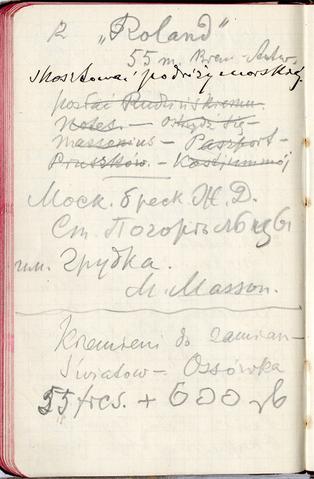 12 „Roland"
55 m. Brem - Antw.
skosztować podróży morskiej
posłać Rudzińskiemu
Notes. — się
Massonius — Paszport —
Pruszków. — Kostjum mój
Моск. брест Ж. Д.
Ст. Погорѣльцы
им. Грудка.
M. Masson.
Krzemieni do zamian-
Światow — Ossówka
55 frcs. + 600